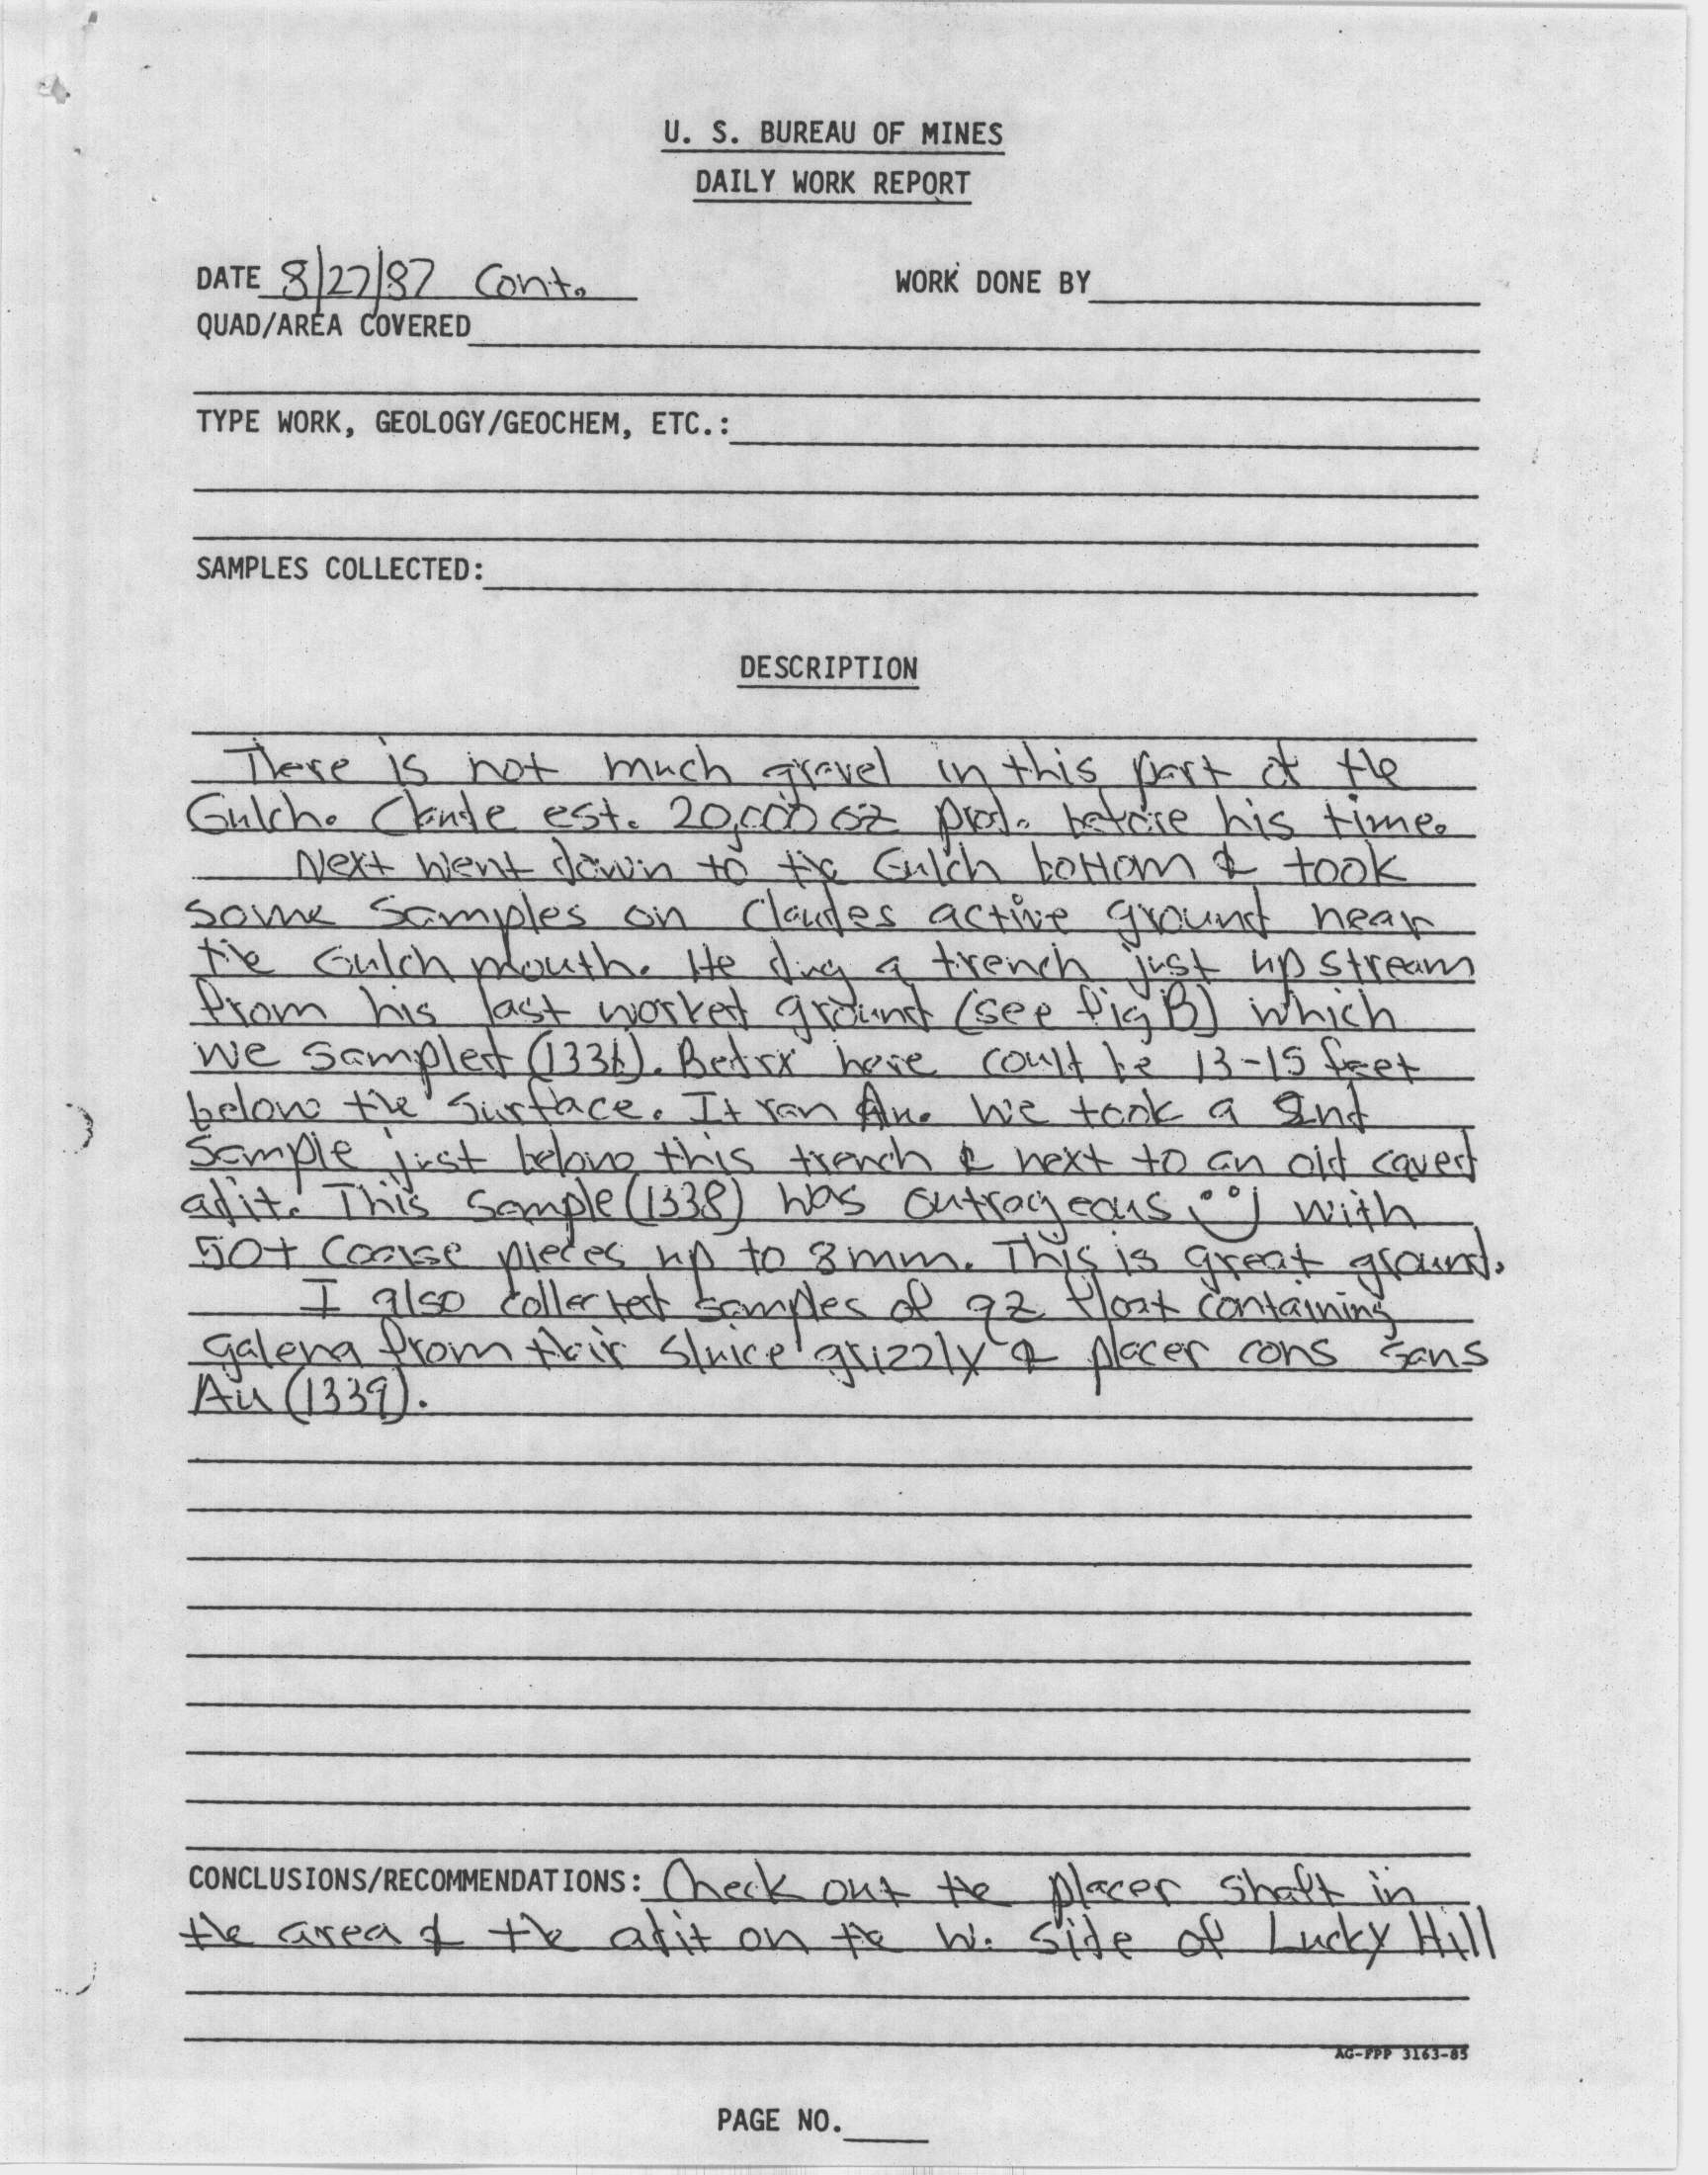 U. S. BUREAU OF MINES
DAILY WORK REPORT
DATE 8/27/87 Cont. WORK DONE BY
QUAD/AREA COVERED
TYPE WORK, GEOLOGY/GEOCHEM, ETC.:
SAMPLES COLLECTED:
DESCRIPTION
There is not much gravel in this part of the
Gulch. Claude est. 20,000 oz prod. before his time.
Next went down to the Gulch bottom & took
some samples on Claudes active ground near
the Gulch mouth. He dug a trench just upstream
from his last worked ground (see fig B) which
we sampled. Bedrx here could be 13-15 feet
below the surface. It ran Au. We took a 2nd
Sample just below this trench & next to an old caved
adit. This sample (1338) was outrageous with
50+ coarse pieces up to 8mm. This is great ground.
I also collected samples of qz float containing
galena from their sluice grizzly & placer cons sans
Au (1339).
CONCLUSIONS/RECOMMENDATIONS: Check out the placer shaft in
the area & the adit on the W. side of Lucky Hill
AG-FPP 3163-85
PAGE NO.